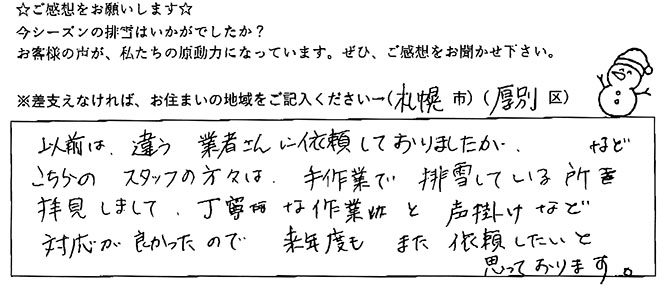 ☆ご感想をお願いします☆
今シーズンの排雪はいかがでしたか？
お客様の声が、私たちの原動力になっています。ぜひ、ご感想をお聞かせ下さい。
※差支えなければ、お住まいの地域をご記入ください→（札幌 市）（厚別 区）
以前は、違う 業者さんに依頼しておりましたが、
こちらの スタッフの方々は、手作業で 排雪している 所など
拝見しまして、丁寧な作業と 声掛けなど
対応が 良かったので 来年度も また 依頼したいと
思っております。